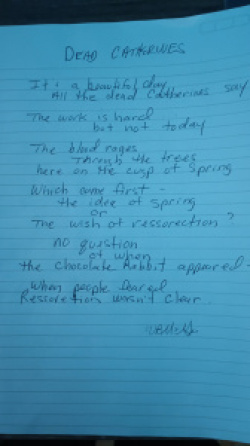 DEAD CATHERINES
It's a beautiful day
All the dead Catherines say
The work is hard
but not today
The blood rages
Through the trees
here on the cusp of Spring
Which came first -
the idea of spring
or
The wish of ressorection?
no question
of when
the Chocolate Rabbit appeared -
When people feared
Ressorection wasn't clear